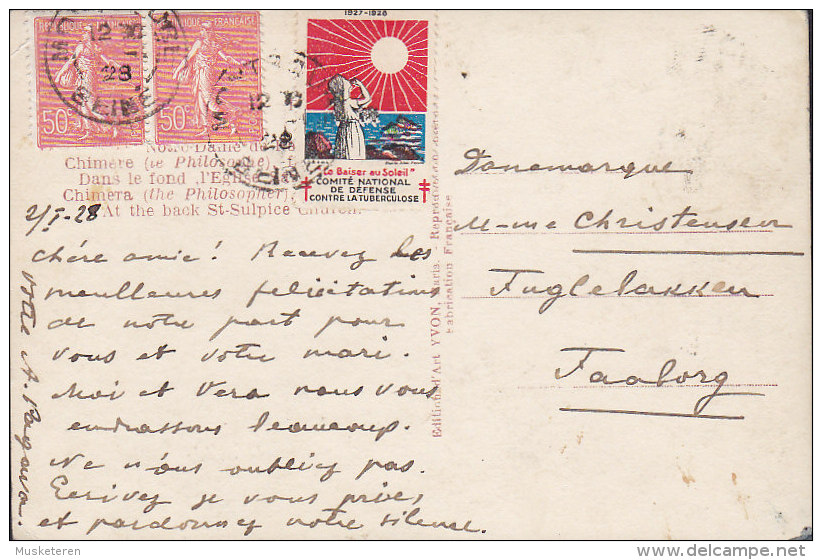 RÉPUBLIQUE FRANÇAISE
50c 50c
1927-1928
"Le Baiser au Soleil"
COMITÉ NATIONAL
DE DÉFENSE
CONTRE LA TUBERCULOSE
Notre-Dame de
Chimère (le Philosophe)
Dans le fond, l'Église
Chimera (the Philosopher),
At the back St-Sulpice Church.
2/I-28
chère amie! Recevez les
meulleures felicitations
de notre part pour
vous et votre mari.
Moi et Vera nous vous
embrassons beaucoup.
Ne n'ous oubliez pas.
Ecrivez je vous pries,
et pardonnez notre silense.
Votre A.
Edition d'Art YVON, Paris. - Reproduction
Fabrication Française
Danemarque
M-me Christensen
Fuglebakken
Faaborg
Musketeren
delcampe.net